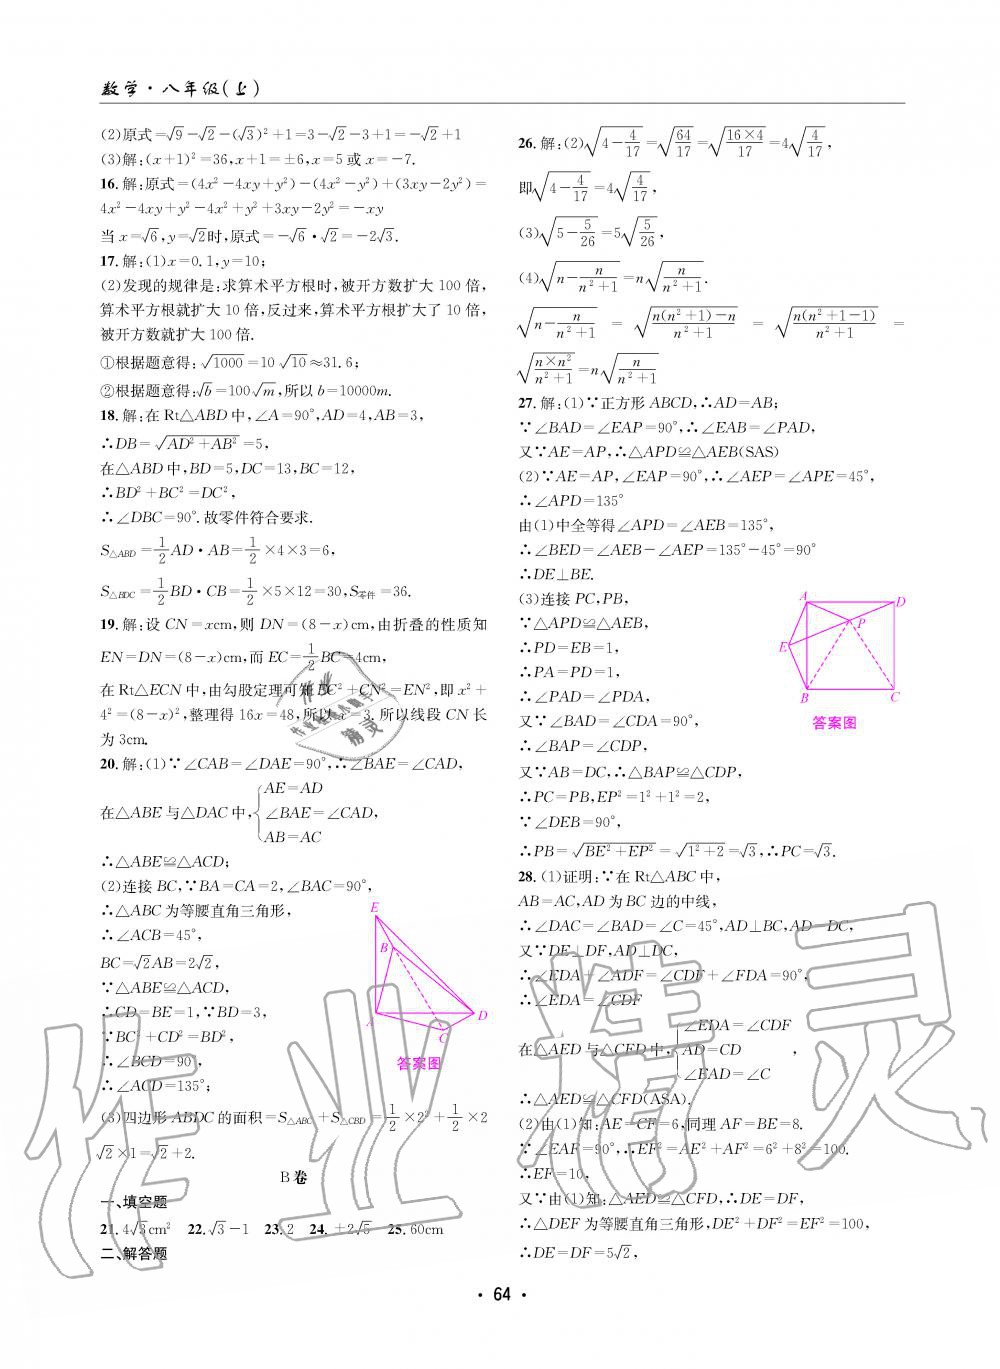 数学·八年级(上)
(2)原式=√9-√2-(√3)²+1=3-√2-3+1=-√2+1
(3)解:(x+1)²=36,x+1=±6,x=5或x=-7.
16.解:原式=(4x²-4xy+y²)-(4x²-y²)+(3xy-2y²)=
4x²-4xy+y²-4x²+y²+3xy-2y²=-xy
当x=√6,y=√2时,原式=-√6·√2=-2√3.
17.解:(1)x=0.1,y=10;
(2)发现的规律是:求算术平方根时,被开方数扩大100倍,
算术平方根就扩大10倍,反过来,算术平方根扩大了10倍,
被开方数就扩大100倍.
①根据题意得:√1000=10√10≈31.6;
②根据题意得:√b=100√m,所以b=10000m.
18.解:在Rt△ABD中,∠A=90°,AD=4,AB=3,
∴DB=√(AD²+AB²)=5,
在△ABD中,BD=5,DC=13,BC=12,
∴BD²+BC²=DC²,
∴∠DBC=90°.故零件符合要求.
S△ABD=1/2AD·AB=1/2×4×3=6,
S△BDC=1/2BD·CB=1/2×5×12=30,S零件=36.
19.解:设CN=xcm,则DN=(8-x)cm,由折叠的性质知
EN=DN=(8-x)cm,而EC=1/2BC=4cm,
在Rt△ECN中,由勾股定理可知EC²+CN²=EN²,即x²+
4²=(8-x)²,整理得16x=48,所以x=3.所以线段CN长
为3cm.
20.解:(1)∵∠CAB=∠DAE=90°,∴∠BAE=∠CAD,
在△ABE与△DAC中,{AE=AD
∠BAE=∠CAD,
AB=AC
∴△ABE≌△ACD;
(2)连接BC,∵BA=CA=2,∠BAC=90°,
∴△ABC为等腰直角三角形,
∴∠ACB=45°,
BC=√2AB=2√2,
∵△ABE≌△ACD,
∴CD=BE=1,∵BD=3,
∵BC²+CD²=BD²,
∴∠BCD=90°,
∴∠ACD=135°;
E
B
A
D
C
答案图
(3)四边形ABDC的面积=S△ABC+S△CBD=1/2×2²+1/2×2
√2×1=√2+2.
B卷
一、填空题
21.4√3cm² 22.√3-1 23.2 24.±2√5 25.60cm
二、解答题
26.解:(2)√(4-4/17)=√(64/17)=√(16×4/17)=4√(4/17),
即√(4-4/17)=4√(4/17),
(3)√(5-5/26)=5√(5/26),
(4)√(n-n/(n²+1))=n√(n/(n²+1)).
√(n-n/(n²+1))=√((n(n²+1)-n)/(n²+1))=√(n(n²+1-1)/(n²+1))=
√(n×n²/(n²+1))=n√(n/(n²+1))
27.解:(1)∵正方形ABCD,∴AD=AB;
∵∠BAD=∠EAP=90°,∴∠EAB=∠PAD,
又∵AE=AP,∴△APD≌△AEB(SAS)
(2)∵AE=AP,∠EAP=90°,∴∠AEP=∠APE=45°,
∴∠APD=135°
由(1)中全等得∠APD=∠AEB=135°,
∴∠BED=∠AEB-∠AEP=135°-45°=90°
∴DE⊥BE.
(3)连接PC,PB,
∵△APD≌△AEB,
∴PD=EB=1,
∴PA=PD=1,
∴∠PAD=∠PDA,
又∵∠BAD=∠CDA=90°,
∴∠BAP=∠CDP,
又∵AB=DC,∴△BAP≌△CDP,
∴PC=PB,EP²=1²+1²=2,
∵∠DEB=90°,
∴PB=√(BE²+EP²)=√(1²+2)=√3,∴PC=√3.
A
D
P
E
B
C
答案图
28.(1)证明:∵在Rt△ABC中,
AB=AC,AD为BC边的中线,
∴∠DAC=∠BAD=∠C=45°,AD⊥BC,AD=DC,
又∵DE⊥DF,AD⊥DC,
∴∠EDA+∠ADF=∠CDF+∠FDA=90°,
∴∠EDA=∠CDF
在△AED与△CFD中,{∠EDA=∠CDF
AD=CD,
∠EAD=∠C
∴△AED≌△CFD(ASA).
(2)由(1)知:AE=CF=6,同理AF=BE=8.
∵∠EAF=90°,∴EF²=AE²+AF²=6²+8²=100.
∴EF=10,
又∵由(1)知:△AED≌△CFD,∴DE=DF,
∴△DEF为等腰直角三角形,DE²+DF²=EF²=100,
∴DE=DF=5√2,
·64·
作业精灵